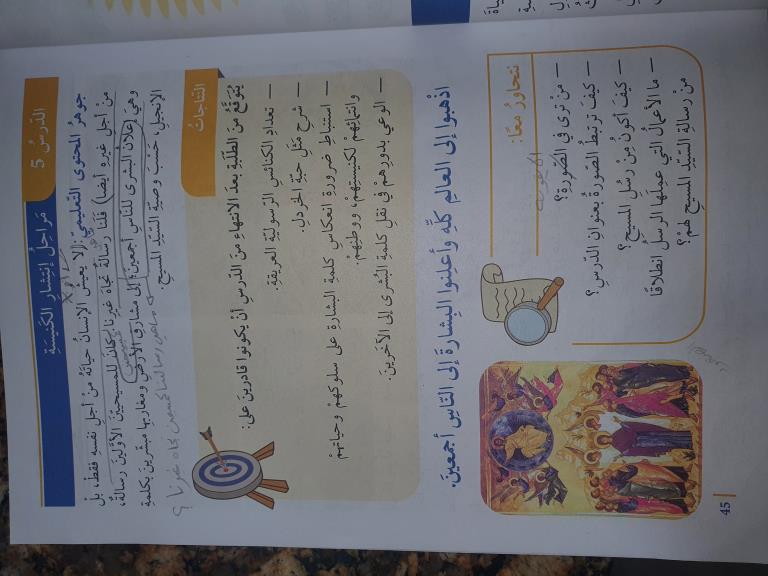 الدّرسُ 5
مَراحِلُ اِنتِشارِ الكَنيسَةِ
جوهرُ المحتوى التّعليميّ: (لا يعيشُ الإنسانُ حياتَهُ من أجلِ نفسِهِ فقط، بلْ
من أجلِ غيرِهِ أيضًا) فَلَنا رسالةٌ تجاهَ غيرِنا، كانَ للمسيحيّينَ الأوّلينَ رسالةٌ،
وهيَ (إعلانُ البشرى للنّاسِ أجمعينَ) إلى مشارقِ الأرضِ ومغاربِها مبشّرينَ بكلمةِ
الإنجيلِ، حَسْبَ وصيّةِ السّيّدِ المسيحِ.
النّتاجاتُ
يُتَوَقَّعُ منَ الطّلبَةِ بعدَ الانتهاءِ منَ الدّرسِ أنْ يكونوا قادرينَ على:
– تعدادِ الكنائسِ الرّسوليّةِ العريقةِ.
– شرحِ مَثَلِ حبّةِ الخردلِ.
– استنباطِ ضرورةِ انعكاسِ كلمةِ البشارةِ على سلوكِهمْ وحياتِهمْ
وانتمائِهمْ لكنيستِهمْ، ووطنِهمْ.
– الوعيِ بدورِهمْ في نقلِ كلمةِ البُشرى إلى الآخَرينَ.
اذْهبوا إلى العالمِ كلِّهِ وأعلِنوا البِشارةَ إلى النّاسِ أجمعينَ.
نتحاورُ معًا:
– مَنْ ترى في الصّورةِ؟
– كيفَ ترتبطُ الصّورةُ بعنوانِ الدّرسِ؟
– كيفَ أكونُ مِنْ رُسُلِ المسيحِ؟
– ما الأعمالُ التي عمِلَها الرّسلُ انطلاقًا
مِنْ رسالةِ السّيّدِ المسيحِ لهمْ؟
45